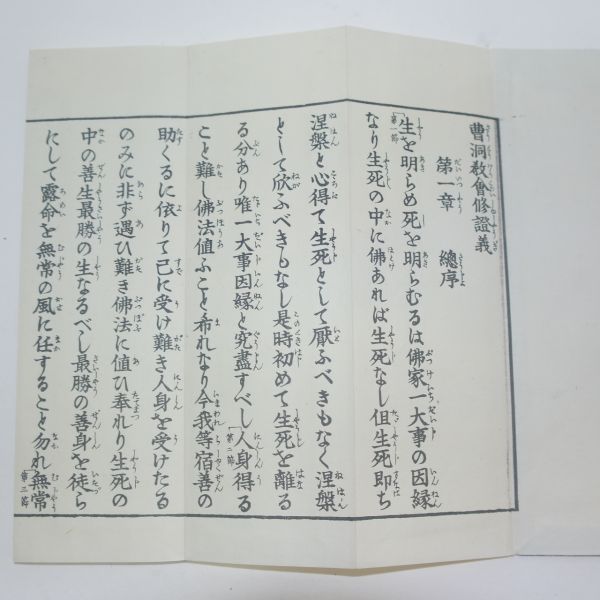 曹洞教會修證義
第一章　總序
第一節 生を明らめ死を明らむるは佛家一大事の因縁
なり生死の中に佛あれば生死なし但生死即ち
涅槃と心得て生死として厭ふべきもなく涅槃
として欣ふべきもなし是時初めて生死を離る
る分あり唯一大事因縁と究盡すべし 第二節 人身得る
こと難し佛法値ふこと希れなり今我等宿善の
助くるに依りて已に受け難き人身を受けたる
のみに非ず遇ひ難き佛法に値ひ奉れり生死の
中の善生最勝の生なるべし最勝の善身を徒ら
にして露命を無常の風に任すること勿れ 第三節 無常